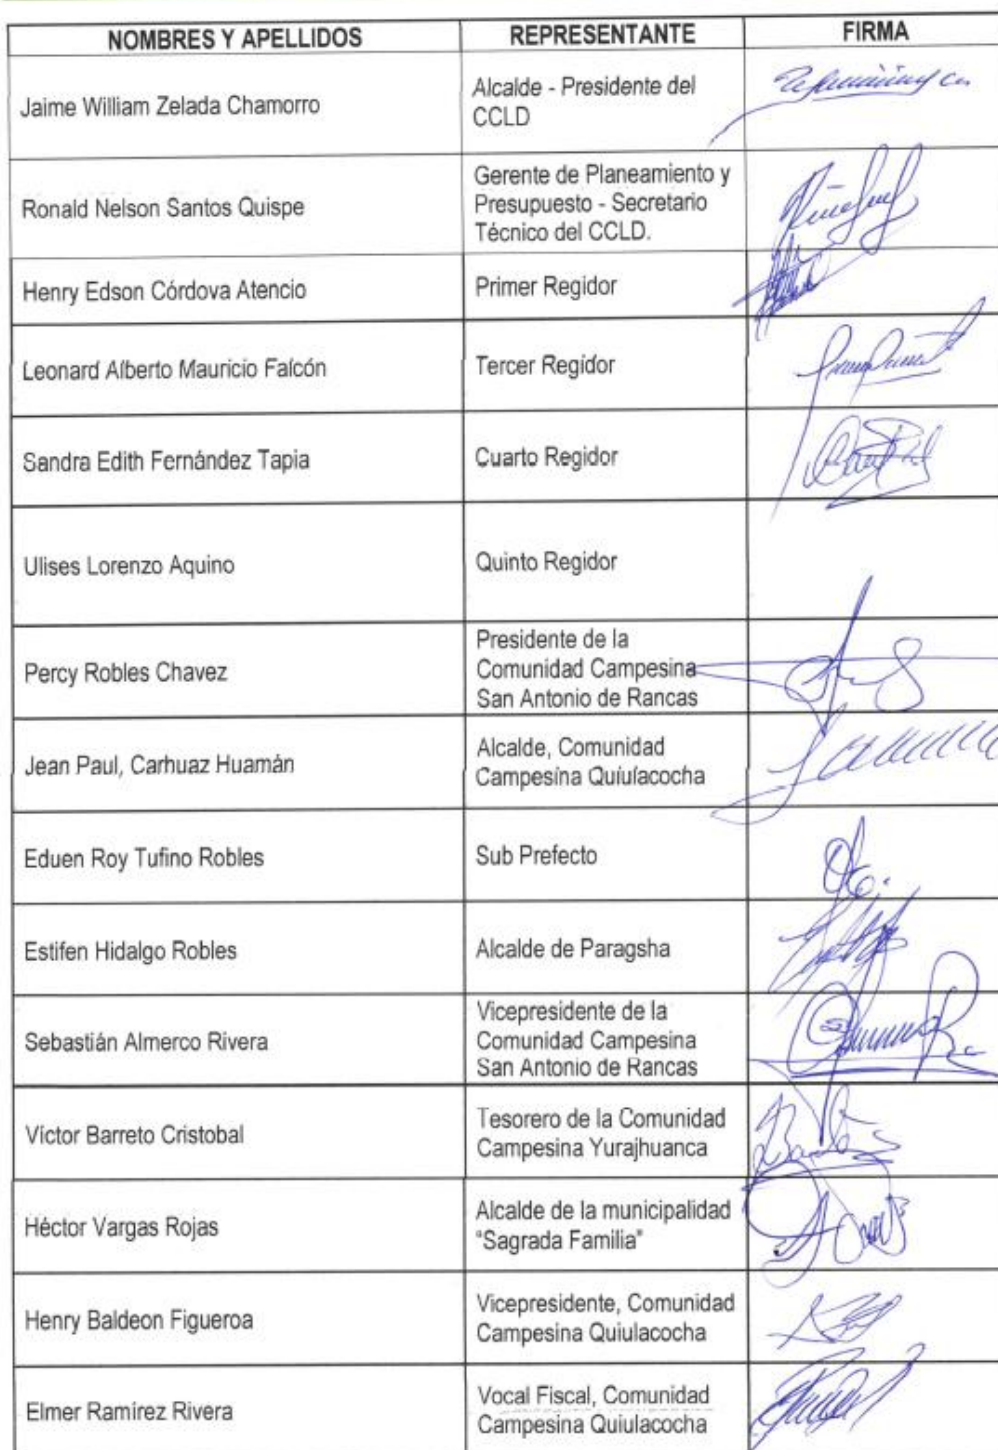 NOMBRES Y APELLIDOS REPRESENTANTE FIRMA
Jaime William Zelada Chamorro
Alcalde - Presidente del
CCLD
Ronald Nelson Santos Quispe
Gerente de Planeamiento y
Presupuesto - Secretario
Técnico del CCLD.
Henry Edson Córdova Atencio
Primer Regidor
Leonard Alberto Mauricio Falcón
Tercer Regidor
Sandra Edith Fernández Tapia
Cuarto Regidor
Ulises Lorenzo Aquino
Quinto Regidor
Percy Robles Chavez
Presidente de la
Comunidad Campesina
San Antonio de Rancas
Jean Paul, Carhuaz Huamán
Alcalde, Comunidad
Campesina Quiulacocha
Eduen Roy Tufino Robles
Sub Prefecto
Estifen Hidalgo Robles
Alcalde de Paragsha
Sebastián Almerco Rivera
Vicepresidente de la
Comunidad Campesina
San Antonio de Rancas
Víctor Barreto Cristobal
Tesorero de la Comunidad
Campesina Yurajhuanca
Héctor Vargas Rojas
Alcalde de la municipalidad
"Sagrada Familia"
Henry Baldeon Figueroa
Vicepresidente, Comunidad
Campesina Quiulacocha
Elmer Ramírez Rivera
Vocal Fiscal, Comunidad
Campesina Quiulacocha